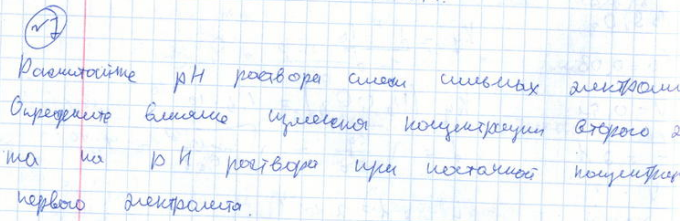 №7
Рассчитайте pH раствора смеси сильных электроли
Определите влияние изменения концентрации второго э
та на pH раствора при постоянной концентра
первого электролита.